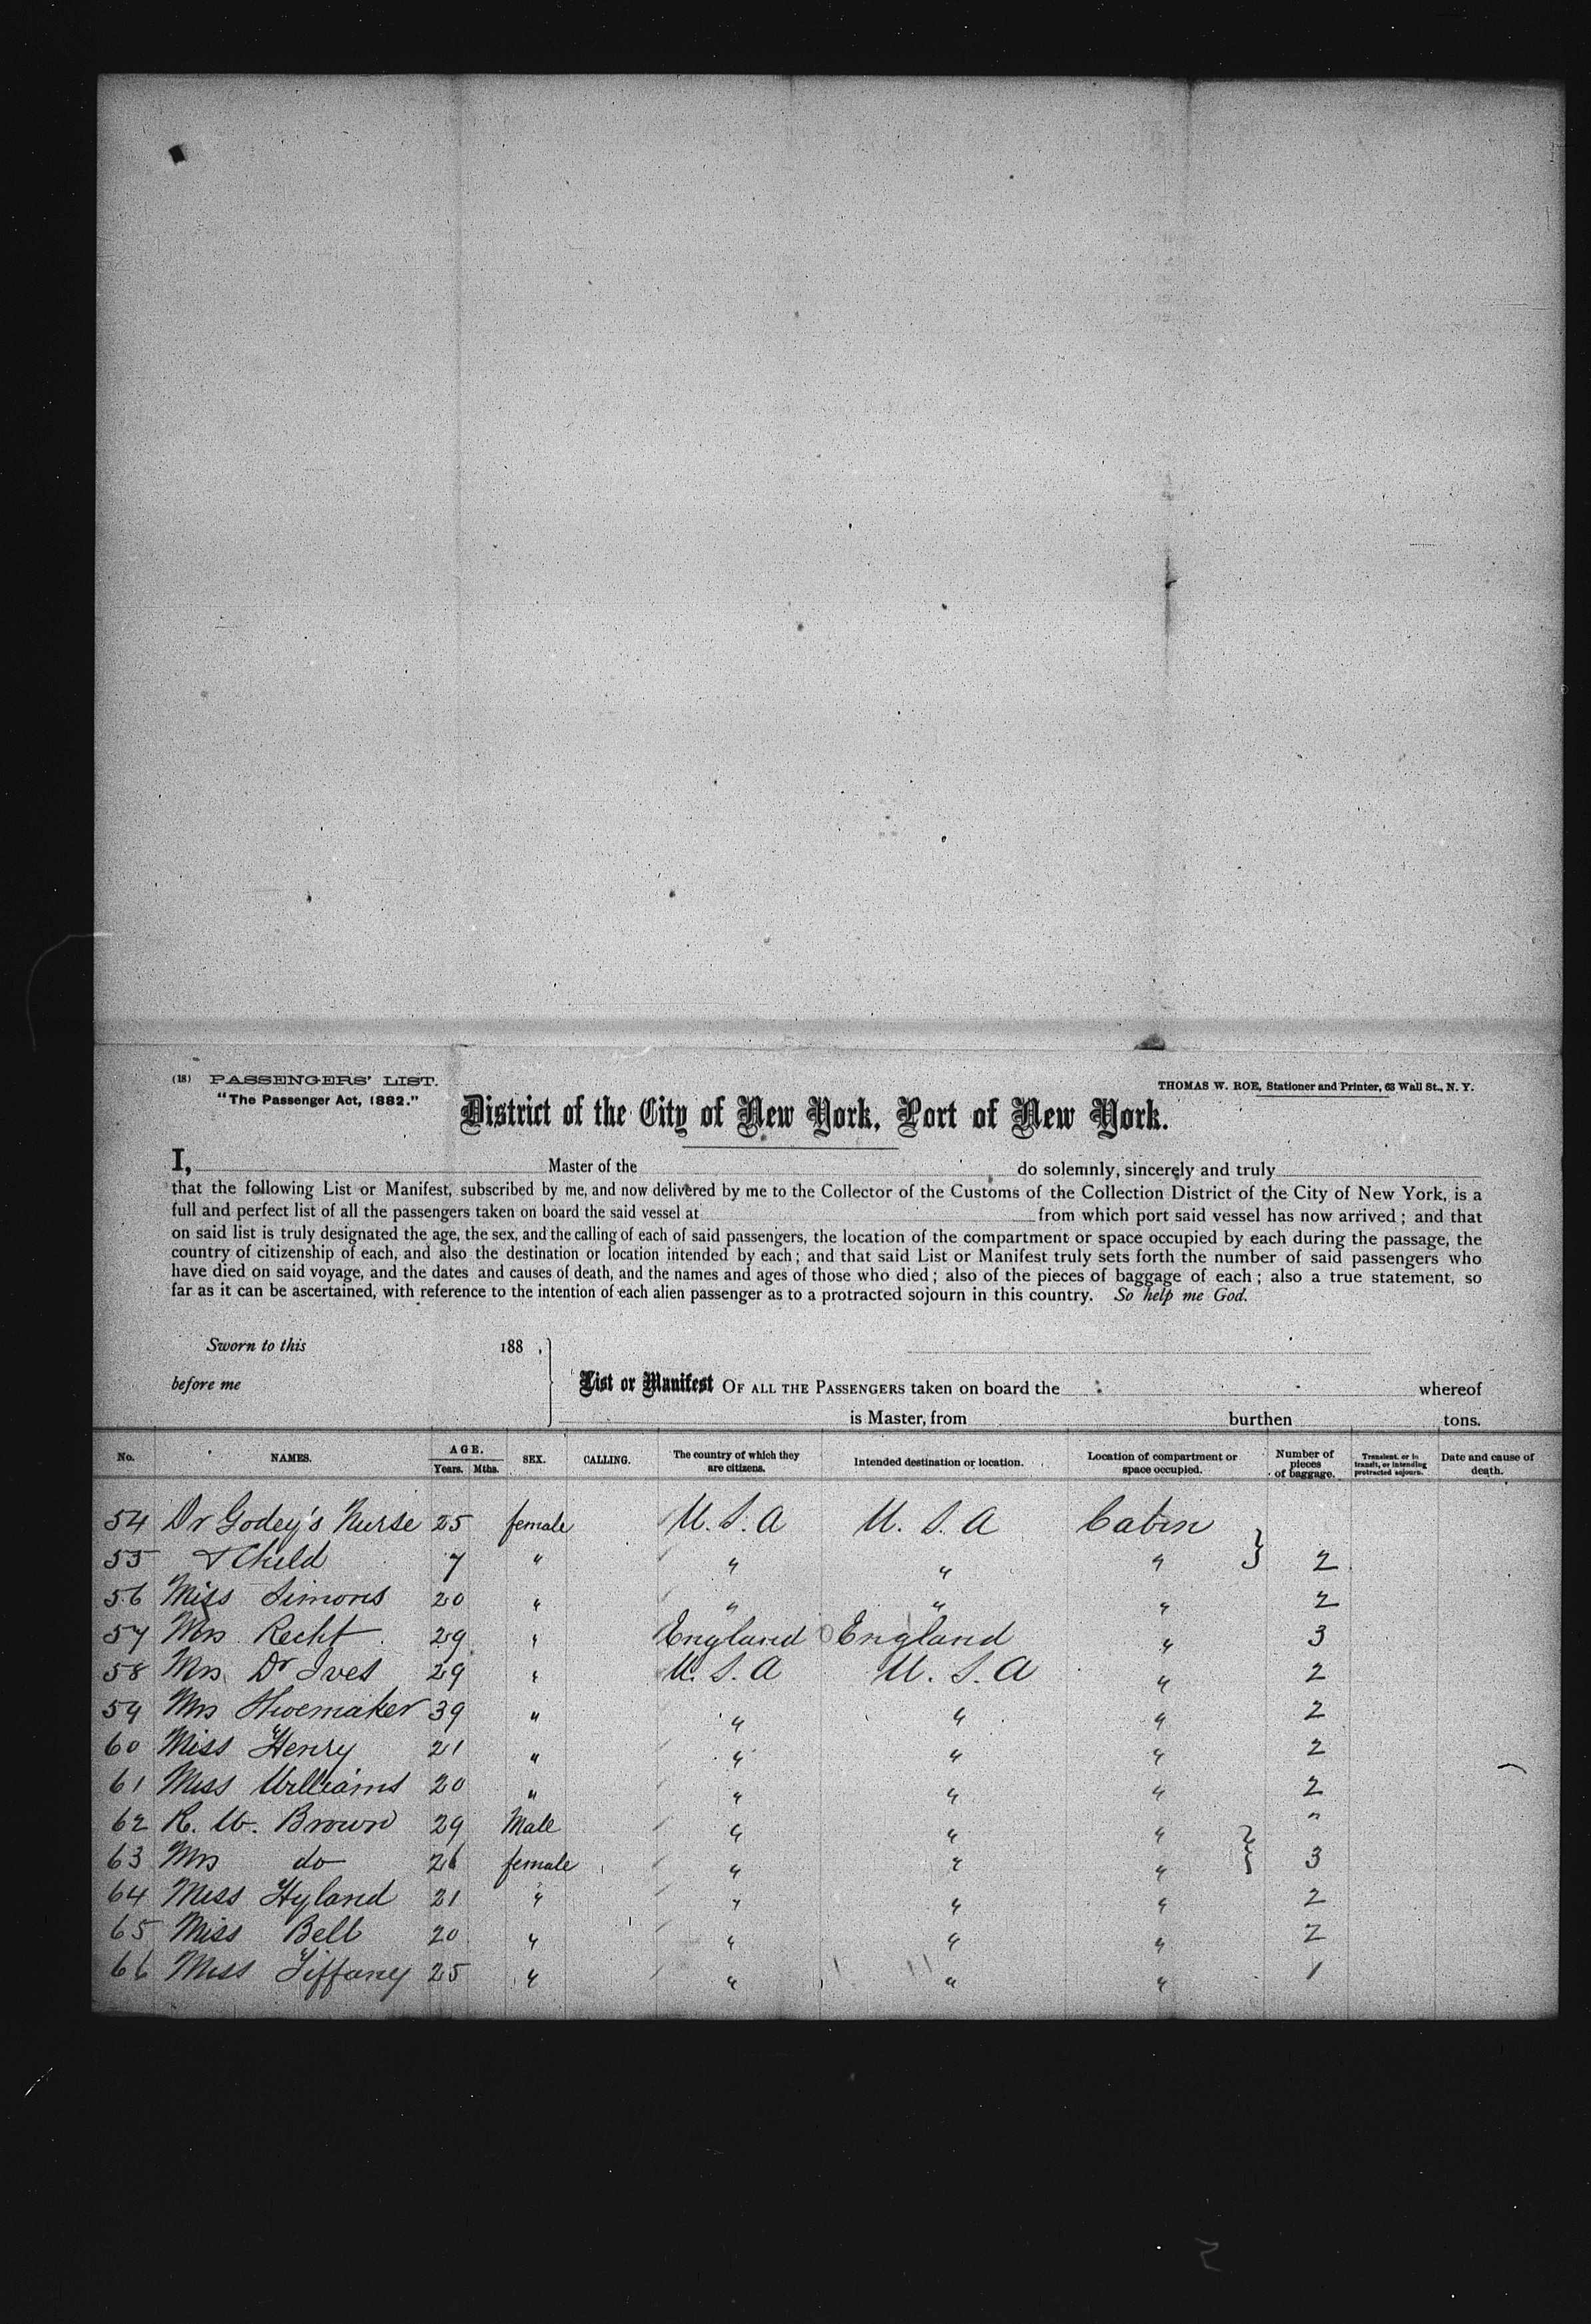 (18) PASSENGERS' LIST.
"The Passenger Act, 1882."
THOMAS W. ROE, Stationer and Printer, 63 Wall St., N. Y.
District of the City of New York, Port of New York.
I, Master of the do solemnly, sincerely and truly
that the following List or Manifest, subscribed by me, and now delivered by me to the Collector of the Customs of the Collection District of the City of New York, is a
full and perfect list of all the passengers taken on board the said vessel at from which port said vessel has now arrived; and that
on said list is truly designated the age, the sex, and the calling of each of said passengers, the location of the compartment or space occupied by each during the passage, the
country of citizenship of each, and also the destination or location intended by each; and that said List or Manifest truly sets forth the number of said passengers who
have died on said voyage, and the dates and causes of death, and the names and ages of those who died; also of the pieces of baggage of each; also a true statement, so
far as it can be ascertained, with reference to the intention of each alien passenger as to a protracted sojourn in this country. So help me God.
Sworn to this 188 .
before me
List or Manifest OF ALL THE PASSENGERS taken on board the whereof
is Master, from burthen tons.
No. NAMES. AGE. Years. Mths. SEX. CALLING. The country of which they are citizens. Intended destination or location. Location of compartment or space occupied. Number of pieces of baggage. Transient, or in transit, or intending protracted sojourn. Date and cause of death.
54 Dr Godey's Nurse 25 female U. S. A U. S. A Cabin
55 & Child 7 " " " " } 2
56 Miss Simons 20 " " " " 2
57 Mrs Recht 29 " England England " 3
58 Mrs Dr Ives 29 " U. S. A U. S. A " 2
59 Mrs Shoemaker 39 " " " " 2
60 Miss Henry 21 " " " " 2
61 Miss Williams 20 " " " " 2
62 R. W. Brown 29 Male " " " "
63 Mrs do 26 female " " " } 3
64 Miss Hyland 21 " " " " 2
65 Miss Bell 20 " " " " 2
66 Miss Tiffany 25 " " " " 1